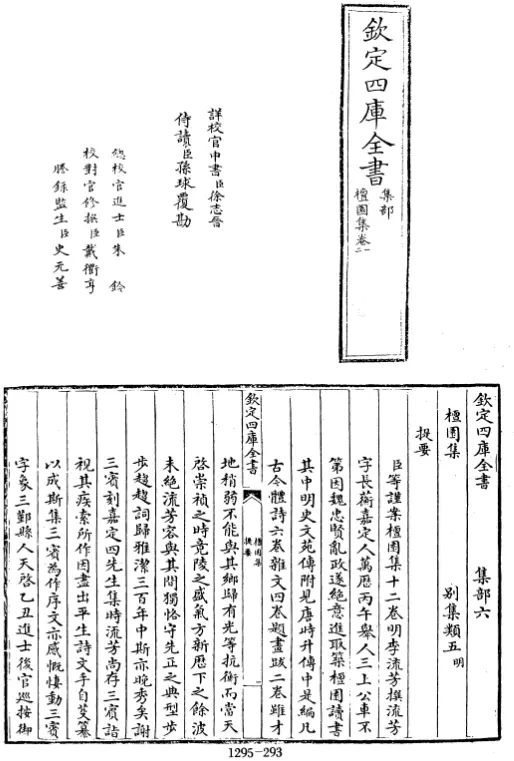 欽定四庫全書
集部
檀園集卷一二
詳校官中書臣徐志晉
侍讀臣孫球覆勘
總校官進士臣朱鈐
校對官修撰臣戴衢亨
謄錄監生臣史元善
欽定四庫全書 集部六
檀園集 別集類五 明
提要
臣等謹案檀園集十二卷明李流芳撰流芳
字長蘅嘉定人萬厯丙午舉人三上公車不
第因魏忠賢亂政遂絶意進取築檀園讀書
其中明史文苑傳附見唐時升傳中是編凡
古今體詩六卷雜文四卷題畫跋二卷雖才
欽定四庫全書
檀園集
提要
一
地稍弱不能與其鄉歸有光等抗衡而當天
啓崇禎之時竟陵之盛氣方新厯下之餘波
未絶流芳容與其間獨恪守先正之典型步
步趨趨詞歸雅潔三百年中斯亦晚秀矣謝
三賓刻嘉定四先生集時流芳尚存三賓詣
視其疾索所作因盡出平生詩文手自芟纂
以成斯集三賓為作序文亦感慨悽動三賓
字象三鄞縣人天啓乙丑進士後官巡按御
1295-293